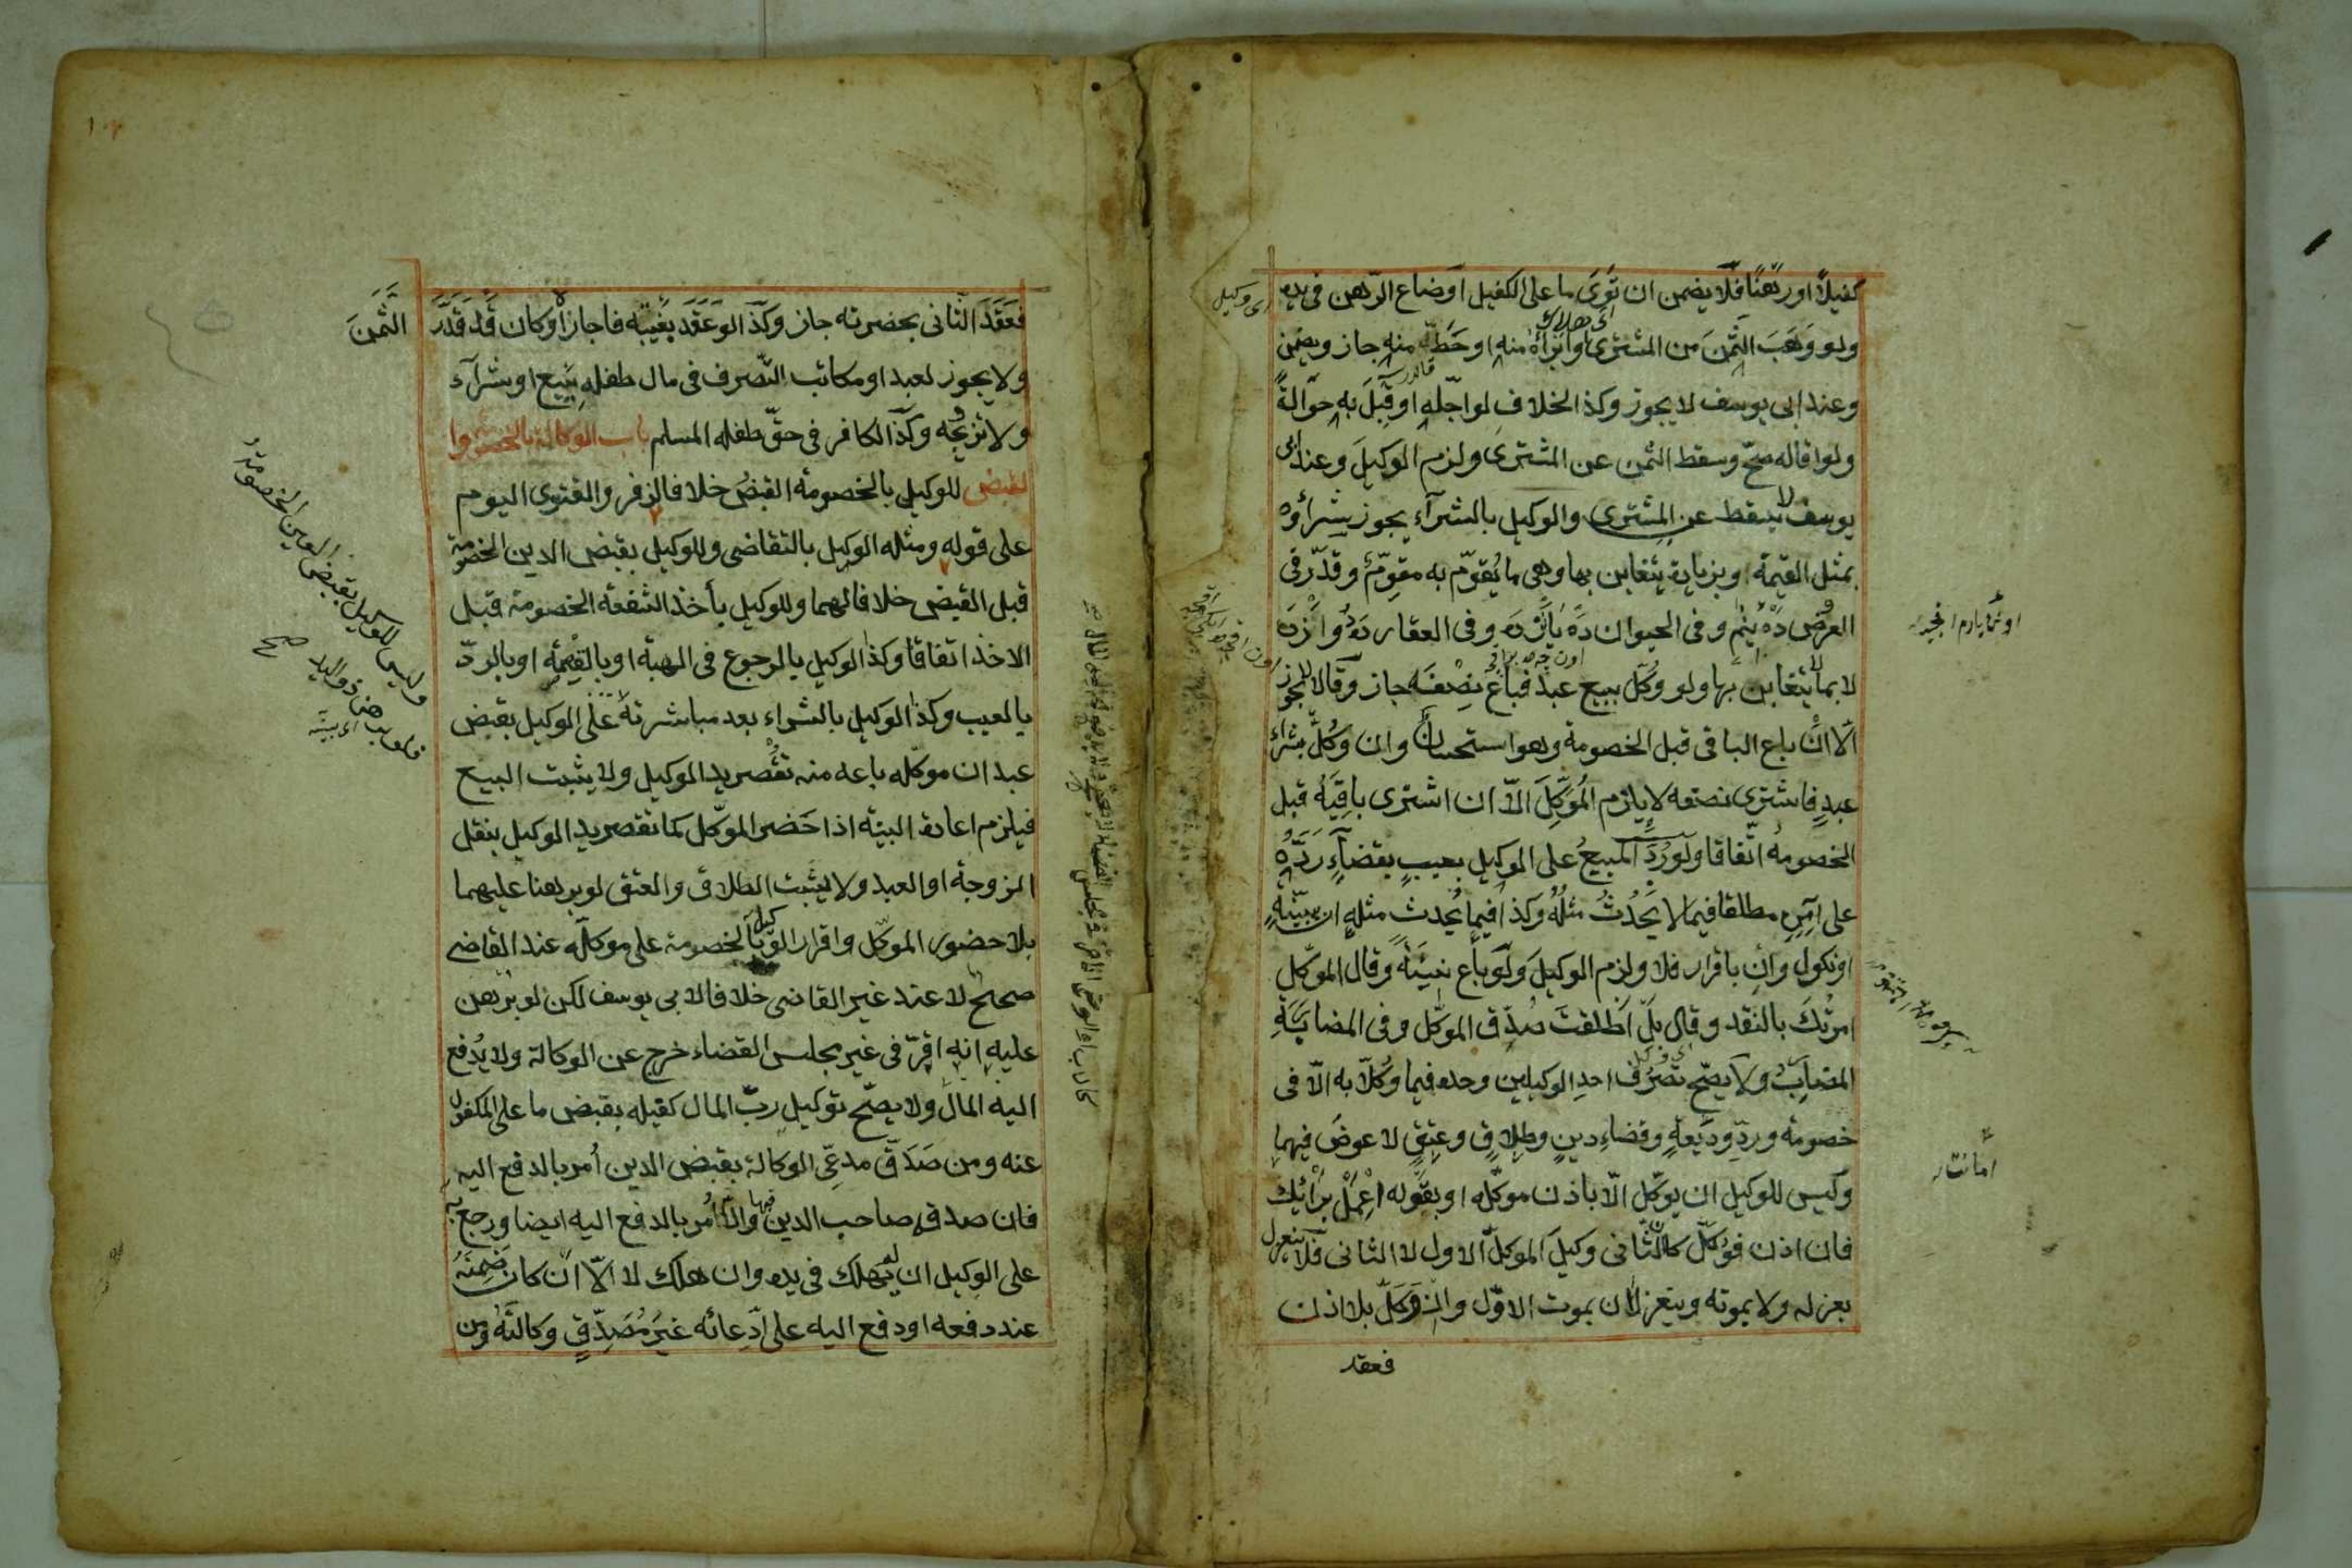 كفيلاً او رهنًا فلا يضمن ان توى ما على الكفيل او ضاع الرهن فى يده
ولو وهب الثمن من المشترى او ابرأه منه او حط منه جاز ويضمن
وعند ابى يوسف لا يجوز وكذا الخلاف لو اجّله او قبل به حوالةً
ولو اقاله صحّ وسقط الثمن عن المشترى ولزم الوكيل وعند ابى
يوسف لا يسقط عن المشترى والوكيل بالشرآء يجوز شراؤه
بمثل القيمة وبزيادة يتغابن بها وهى ما يقوّم به مقوّم وقدّر فى
العروض ده نيم وفى الحيوان ده يازده وفى العقار ده دوازده
لا بما لا يتغابن بها ولو وكّل ببيع عبد فباع نصفه جاز وقالا لا يجوز
الّا ان باع الباقى قبل الخصومة وهو استحسان وان وكّل بشراء
عبد فاشترى نصفه لا يلزم الموكّل الّا ان اشترى باقيه قبل
الخصومة اتّفاقا ولو ردّ المبيع على الوكيل بعيب بقضآء ردّه
على آمره مطلقا فيما لا يحدث مثله وكذا فيما يحدث مثله ان ببيّنة
او نكول وان باقرار فلا ولزم الوكيل ولو باع نسيئة وقال الموكّل
امرتك بالنقد وقال بل اطلقت صُدّق الموكّل وفى المضاربة
المضارب ولا يصحّ تصرّف احد الوكيلين وحده فيما وكّلا به الّا فى
خصومة وردّ وديعة وقضاء دين وطلاق وعتق لا عوض فيهما
وليس للوكيل ان يوكّل الّا باذن موكّله او بقوله اعمل برأيك
فان اذن فوكّل كان الثانى وكيل الموكّل الاول لا الثانى فلا ينعزل
بعزله ولا بموته وينعزلان بموت الاوّل وان وكّل بلا اذن
فعقد
اى وكيل
اى هلاك
امانت
فعقد الثانى بحضرته جاز وكذا لو عقد بغيبته فاجازه او كان قد قدّر الثمن
ولا يجوز لعبد او مكاتب التصرف فى مال طفله ببيع او شرآء
ولا تزويجه وكذا الكافر فى حقّ طفله المسلم باب الوكالة بالخصومة وا
لقبض للوكيل بالخصومة القبض خلافا لزفر والفتوى اليوم
على قوله ومثله الوكيل بالتقاضى وللوكيل بقبض الدين الخصومة
قبل القبض خلافا لهما وللوكيل بأخذ الشفعة الخصومة قبل
الاخذ اتفاقا وكذا الوكيل بالرجوع فى الهبة او بالقسمة او بالردّ
بالعيب وكذا الوكيل بالشراء بعد مباشرته على الوكيل بقبض
عبد ان موكّله باعه منه تقصر يد الوكيل ولا يثبت البيع
فيلزم اعادة البيّنة اذا حضر الموكّل كما تقصر يد الوكيل بنقل
الزوجة او العبد ولا يثبت الطلاق والعتق لو برهنا عليهما
بلا حضور الموكّل واقرار الوكيل بالخصومة على موكّله عند القاضى
صحيح لا عند غير القاضى خلافا لابى يوسف لكن لو برهن
عليه انه اقرّ فى غير مجلس القضاء خرج عن الوكالة ولا يدفع
اليه المال ولا يصحّ توكيل ربّ المال كفيله بقبض ما على المكفول
عنه ومن صدّق مدعى الوكالة بقبض الدين اُمر بالدفع اليه
فان صدقه صاحب الدين فبها والّا اُمر بالدفع اليه ايضا ورجع به
على الوكيل ان لم يهلك فى يده وان هلك لا الّا ان كان ضمّنه
عند دفعه او دفع اليه على ادّعائه غير مصدّق وكالته ومن
وليس للوكيل بقبض العين الخصومة
صح